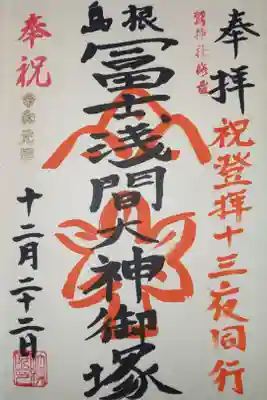 奉拝
祝登拝十三夜同行
島根
冨士浅間大神御塚
奉祝
十二月二十二日